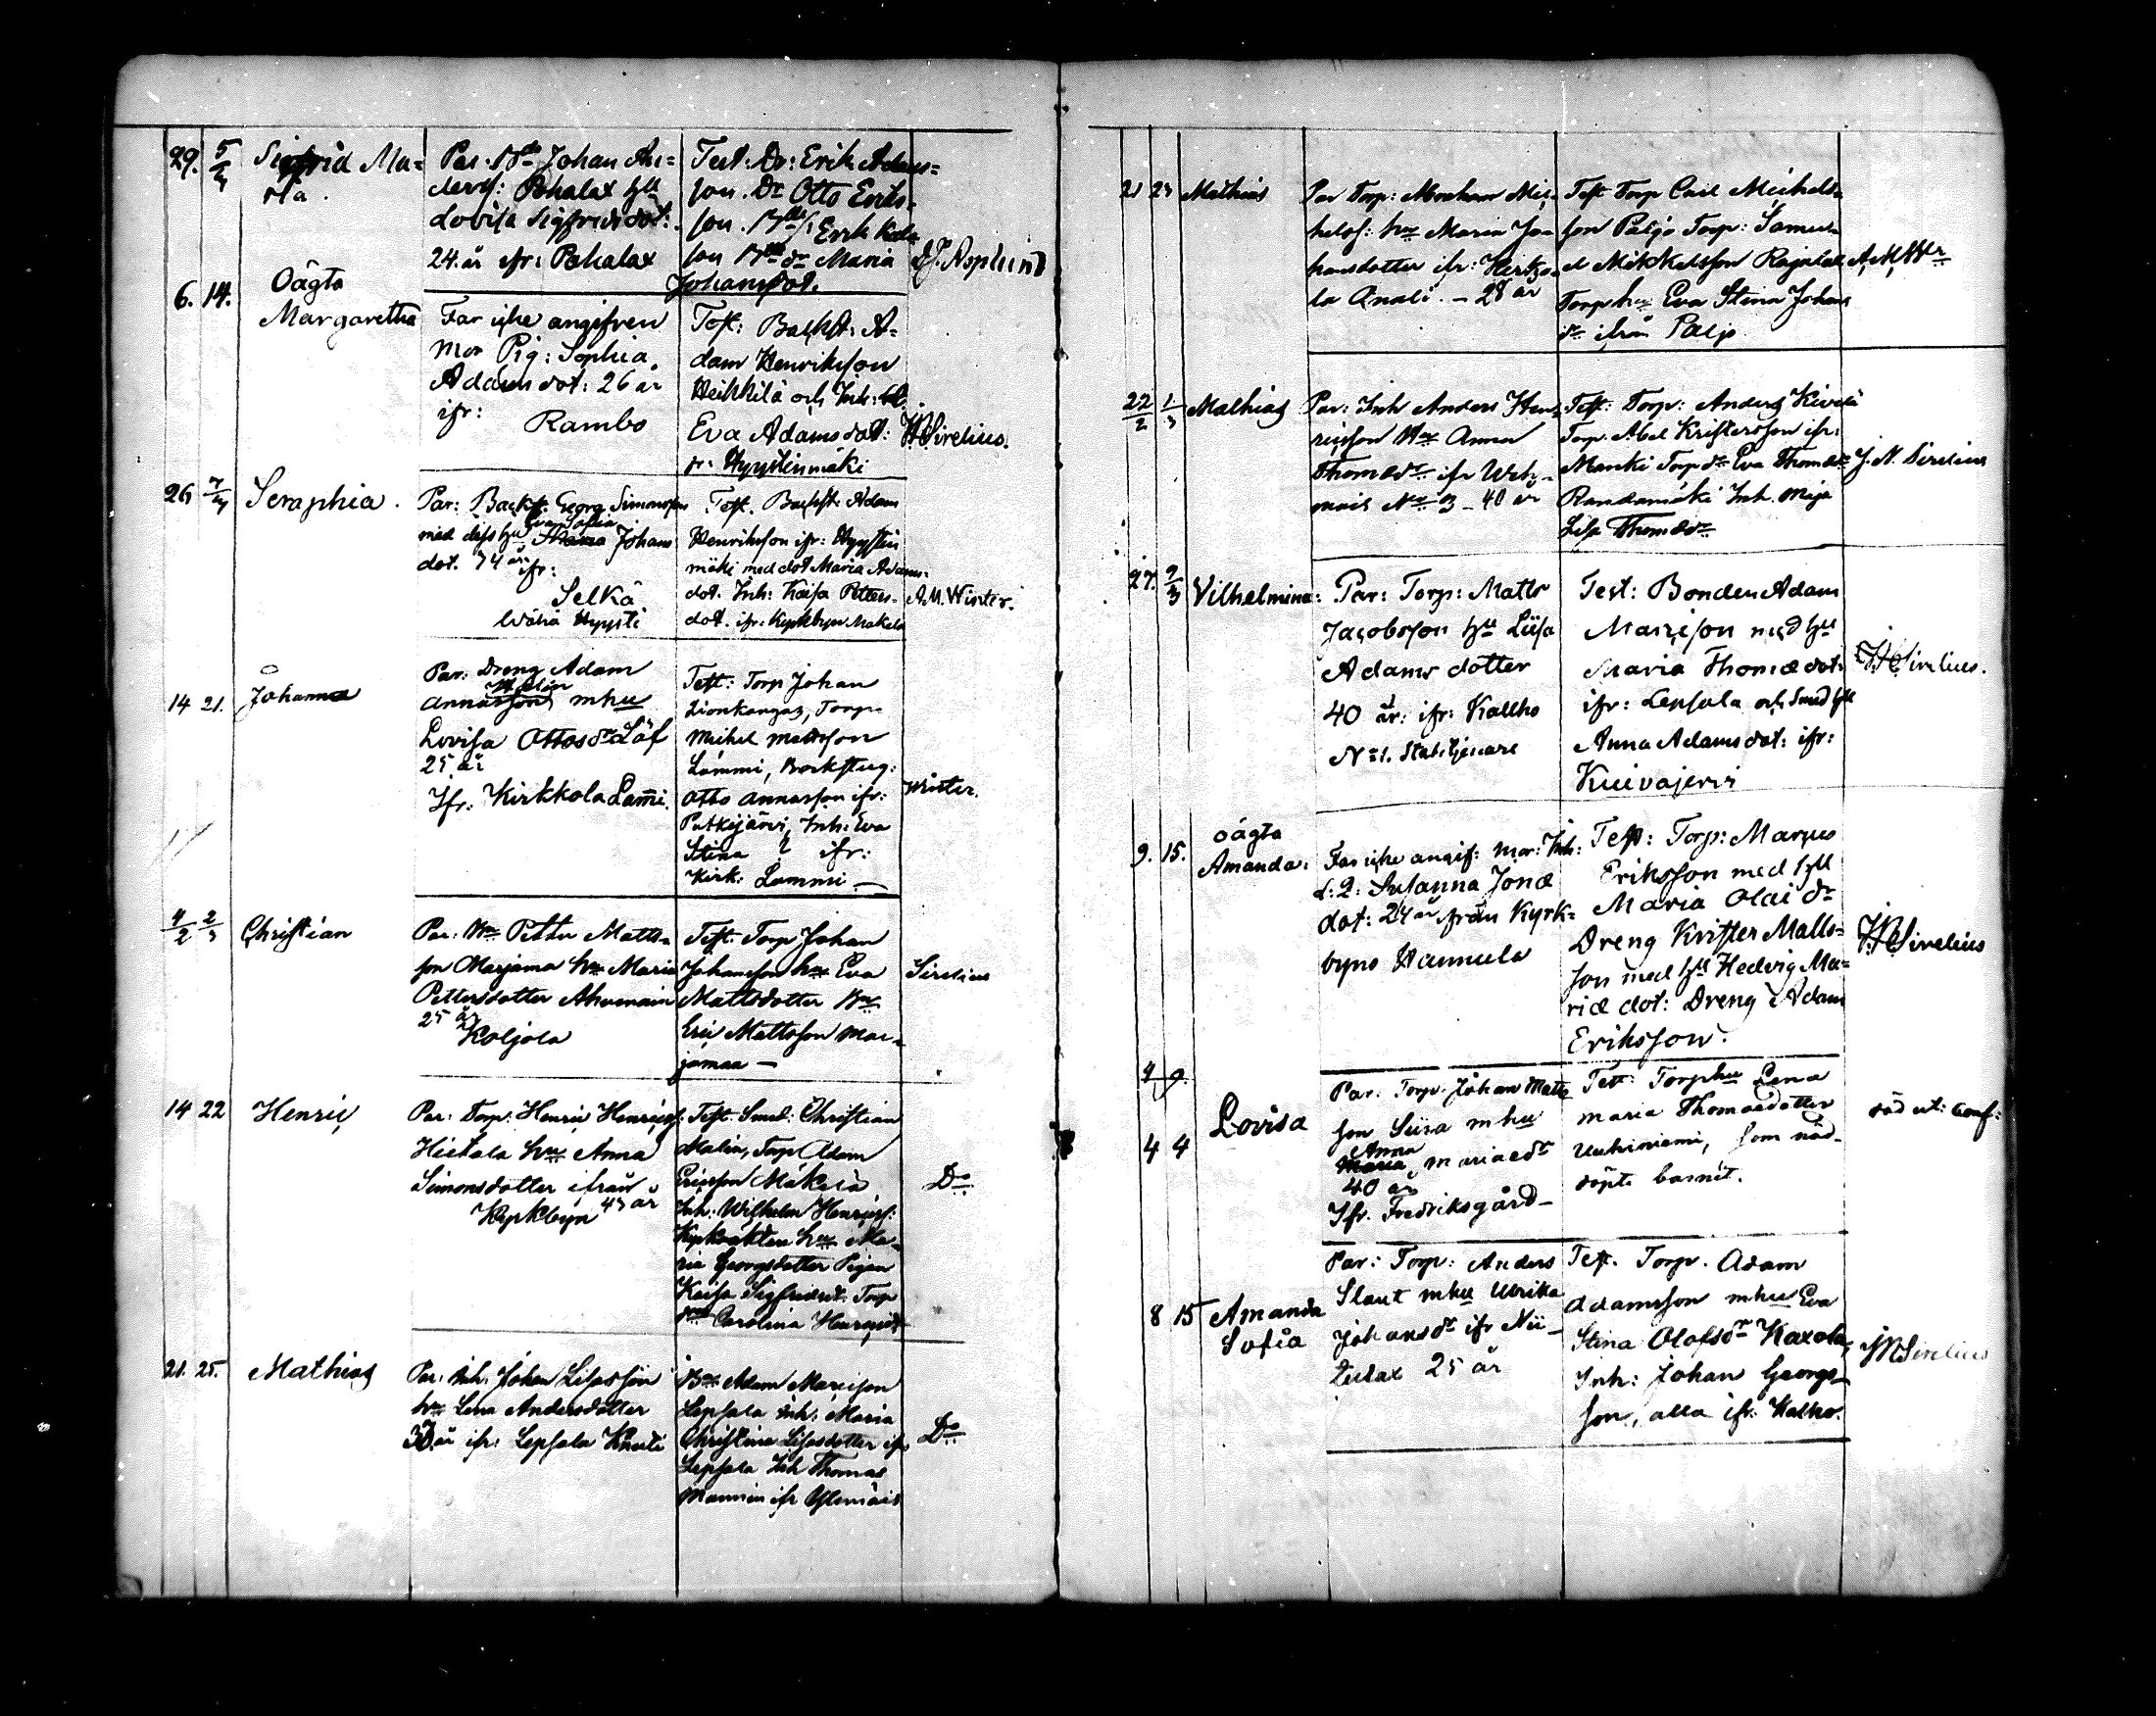 29. 5/3 Sigfrid Ma=
ria.
Par. Johan An=
ders: Pohalax hu
Lovisa Sigfridsdot:
24. år ifr: Pohalax
Test: Do: Erik Adams=
son. Do Otto Eriks=
son.
son Maria
Johansdot.
Asplund
6. 14. Oägta
Margaretha
Far icke angifven
Mor Pig: Sophia
Adamsdot: 26 år
ifr: Rambo
Test: Backst: A=
dam Henriksson
Heikkilä och Inh:
Eva Adamsdot:
fr: Hyystinmäki
Sirelius.
26 Seraphia.
Par: Backst. Georg Simonsson
med dess hu Eva Sofia Johans
dot. 34 år
ifr:
Selkä
Wäha Hyysti
Test. Backst: Adam
Henriksson ifr: Hyystin
mäki med dot Maria Adams=
dot. Inh: Kaisa Petters=
dot. ifr: Kyrkbyn Makela
A.M. Winter.
14 21. Johanna
Par: Dreng Adam
Annasson mhu
Lovisa Ottosdr Löf
25 år
Ifr: Kirkkola Lam̄i.
Test: Torp Johan
Lionkangas, Torp.
Michel Mattsson
Lammi, Backstug:
Otto Annasson ifr:
Putkijärvi, Inh: Eva
Stina ? ifr:
Kirk: Lammi —
Winter.
4/2 2/3 Christian
Par: Petter Matts=
son Marjamaa hu Maria
Pettersdotter Ahomain
25 år
Koljola
Test. Torp Johan
Johansson hu Eva
Mattsdotter
Eric Mattsson Mar=
jamaa —
Sirelius
14 22 Henric
Par: Torp: Henric Henricss:
Hietala hu Anna
Simonsdotter ifrån
Kyrkbyn 43 år
Test. Smed: Christian
Malin, Torp Adam
Ericsson Mäkelä
Inh: Wilhelm Henricss:
Kyrkväkten hu Ma=
ria Georgsdotter Pigan
Kaisa Sigfridsdt. Torp
Carolina Henricsdt
Do
21. 25. Mathias
Par: Inh: Johan Lisasson
hu Lena Andersdotter
37 år ifr: Lepsala Knuti
Adam Marcisson
Lepsala Inh: Maria
Christina Lisasdotter ifr
Lepsala Inh Thomas
Mannin ifr Ylömäis
Do
21 23 Mathias
Par Torp: Abraham Mic=
helss: hu Maria Jo=
hansdotter ifr: Hirtzo=
la Anali. — 28 år
Test Torp Carl Michels=
son Päljö Torp: Samu=
el Mikkelsson Rajalak
Torp hu Eva Stina Johans
dr ifrån Päljö
22/2 1/3 Mathias
Par: Inh Anders Hen=
ricsson Hu Anna
Thomædr ifr Weh=
mais No 3 — 40 år
Test: Torp: Anders Kivelä
Torp. Abel Kristersson ifr:
Manki Torp dr Eva Thomædr
Randamäki Inh. Maja
Lisa Thomædr
J. N. Sirelius
27. 9/3 Vilhelmina:
Par: Torp: Matts
Jacobsson hu Liisa
Adams dotter
40 år: ifr: Kallho
No 1.
Test: Bonden Adam
Marcisson med hu
Maria Thomædot:
ifr: Lepsala och Smed hu
Anna Adamsdot: ifr:
Kuivajervi
Sirelius.
9. 15. oägta
Amanda:
Far icke angif: Mor: Inh:
Susanna Jonæ
dot: 24 år från Kyrk=
byns Hannula
Test: Torp: Marcus
Eriksson med hu
Maria Olai dr
Dreng Krister Matts=
son med hu Hedvig Ma=
riæ dot: Dreng Adam
Eriksson.
Sirelius
4 9.
4 4 Lovisa
Par: Torp. Johan Matts
son Siira mhu
Anna Mariædr
40 år
Ifr. Fredriksgård —
Test: Torp hu Lena
Maria Thomasdotter
Uuhiniemi, som nöd=
döpte barnet.
död
8 15 Amanda
Sofia
Par: Torp: Anders
Slaut mhu Ulrika
Johansdr ifr Nii=
25 år
Test. Torp. Adam
Adamsson mhu Eva
Stina Olofsdr Kaxola,
Inh: Johan Georgs=
son, alla ifr Kalho.
Sirelius